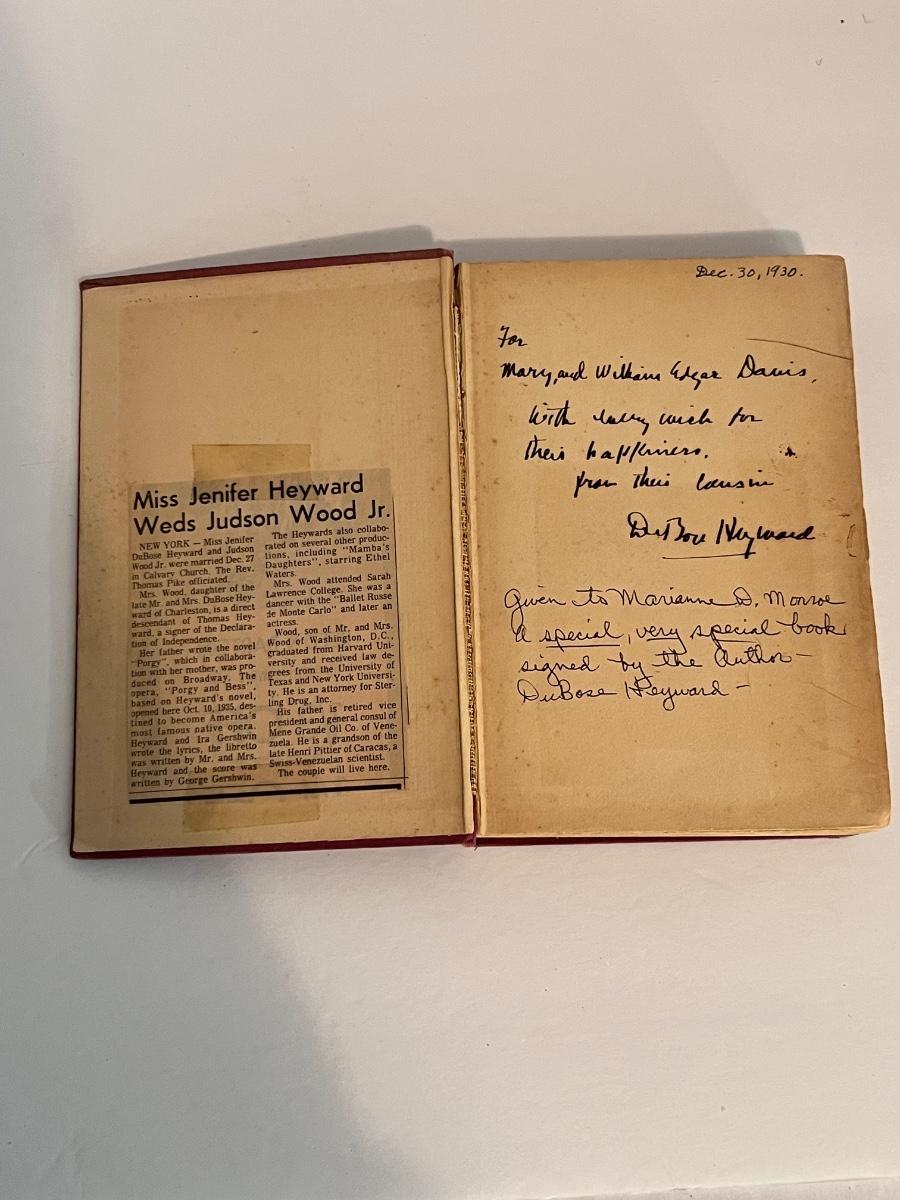 Miss Jenifer Heyward
Weds Judson Wood Jr.
NEW YORK — Miss Jenifer
DuBose Heyward and Judson
Wood Jr. were married Dec. 27
in Calvary Church. The Rev.
Thomas Pike officiated.
Mrs. Wood, daughter of the
late Mr. and Mrs. DuBose Hey-
ward of Charleston, is a direct
descendant of Thomas Hey-
ward, a signer of the Declara-
tion of Independence.
Her father wrote the novel
"Porgy", which in collabora-
tion with her mother, was pro-
duced on Broadway. The
opera, "Porgy and Bess",
based on Heyward's novel,
opened here Oct. 10, 1935, des-
tined to become America's
most famous native opera.
Heyward and Ira Gershwin
wrote the lyrics, the libretto
was written by Mr. and Mrs.
Heyward and the score was
written by George Gershwin.
The Heywards also collabo-
rated on several other produc-
tions, including "Mamba's
Daughters", starring Ethel
Waters.
Mrs. Wood attended Sarah
Lawrence College. She was a
dancer with the "Ballet Russe
de Monte Carlo" and later an
actress.
Wood, son of Mr. and Mrs.
Wood of Washington, D.C.,
graduated from Harvard Uni-
versity and received law de-
grees from the University of
Texas and New York Universi-
ty. He is an attorney for Ster-
ling Drug, Inc.
His father is retired vice
president and general consul of
Mene Grande Oil Co. of Vene-
zuela. He is a grandson of the
late Henri Pittier of Caracas, a
Swiss-Venezuelan scientist.
The couple will live here.
Dec. 30, 1930.
For
Mary, and William Edgar Davis,
With every wish for
their happiness.
from their cousin
DuBose Heyward
Given to Marianne D. Monroe
a special, very special book
signed by the author —
DuBose Heyward —